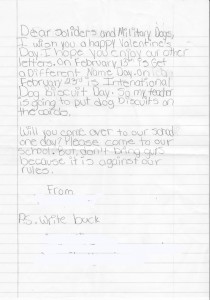 Dear soliders and Military Dogs,
I wish you a happy Valentine's
Day. I hope you enjoy our other
letters. On February 13th is Get
a Different Name Day. On
February 23rd is International
Dog Biscuit Day. So my teacher
is going to put dog biscuits on
the cards.
Will you come over to our school
one day? Please come to our
school. But, don't bring guns
because it is against our
rules.
From
P.s. Write back